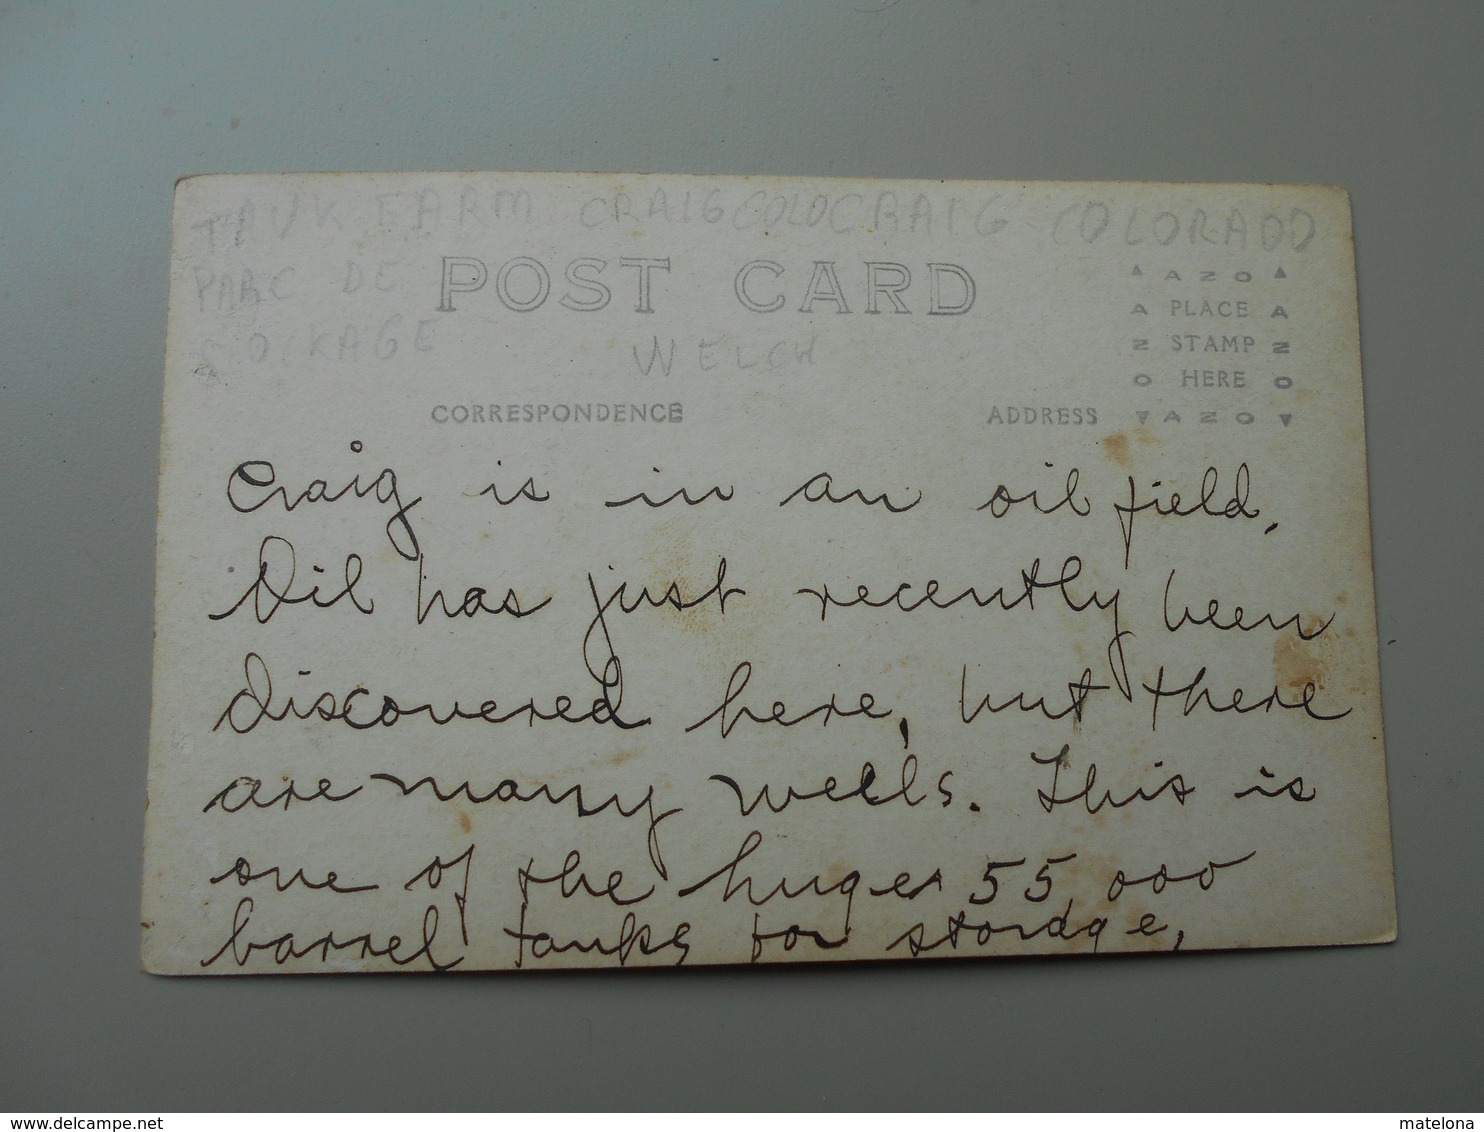 TANK FARM CRAIG COLO CRAIG COLORADO
PARC DE
STOCKAGE
POST CARD
WELCH
CORRESPONDENCE
ADDRESS
AZO
PLACE
STAMP
HERE
AZO
Craig is in an oil field.
Oil has just recently been
discovered here, but there
are many wells. This is
one of the huge 55,000
barrel tanks for storage.
www.delcampe.net
matelona